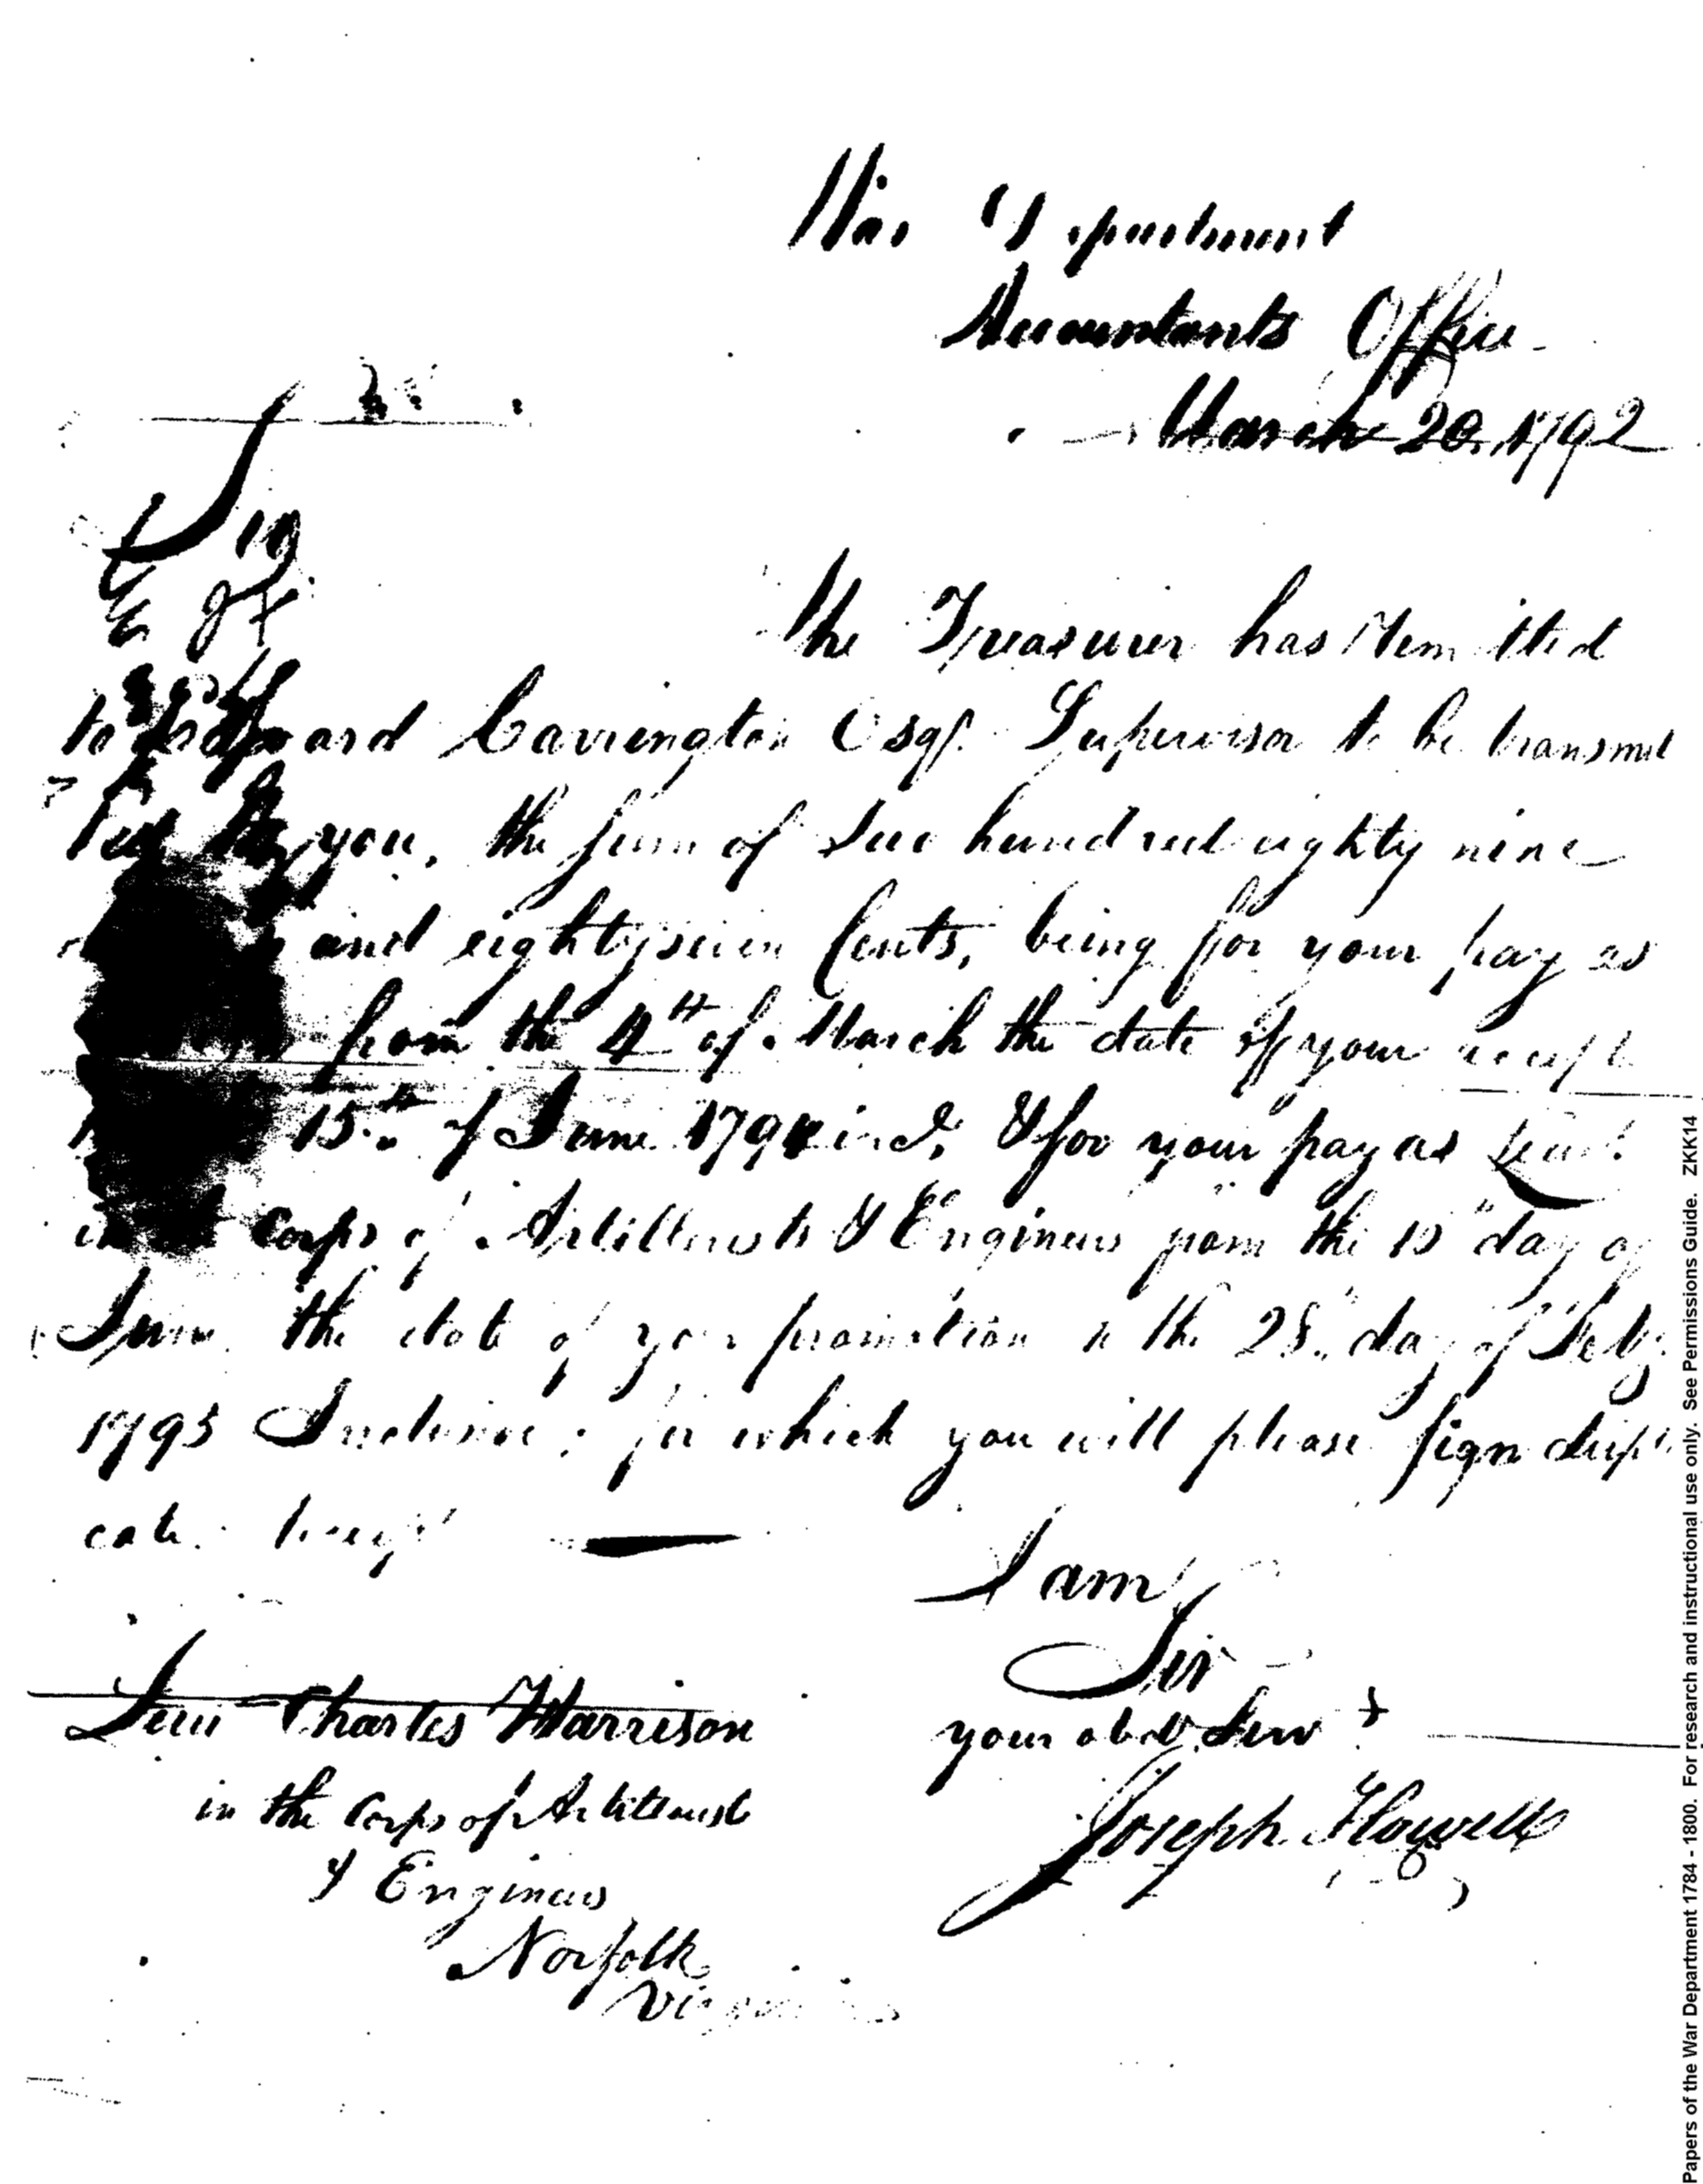 War Department
Accountants Office
March 20. 1792
Sir
The Treasurer has Remitted
to Edward Carrington Esqr. Supervisor to be transmit
ted to you, the sum of hundred eighty nine
and eighty seven Cents, being for your pay as
from the 4th of March the date of your accept
15th of June 179 incl. & for your pay as Lieut.
in Corps of Artillerists & Engineers from the 15th day of
June the date of your promotion to the 28th day of Feby.
1795 Inclusive; for which you will please sign dupli
cate receipts
I am
Sir
your obdt Servt
Joseph Howell
Lieut Charles Harrison
in the Corps of Artillerist
& Engineers
Norfolk
Virginia
Papers of the War Department 1784 - 1800. For research and instructional use only. See Permissions Guide. ZKK14